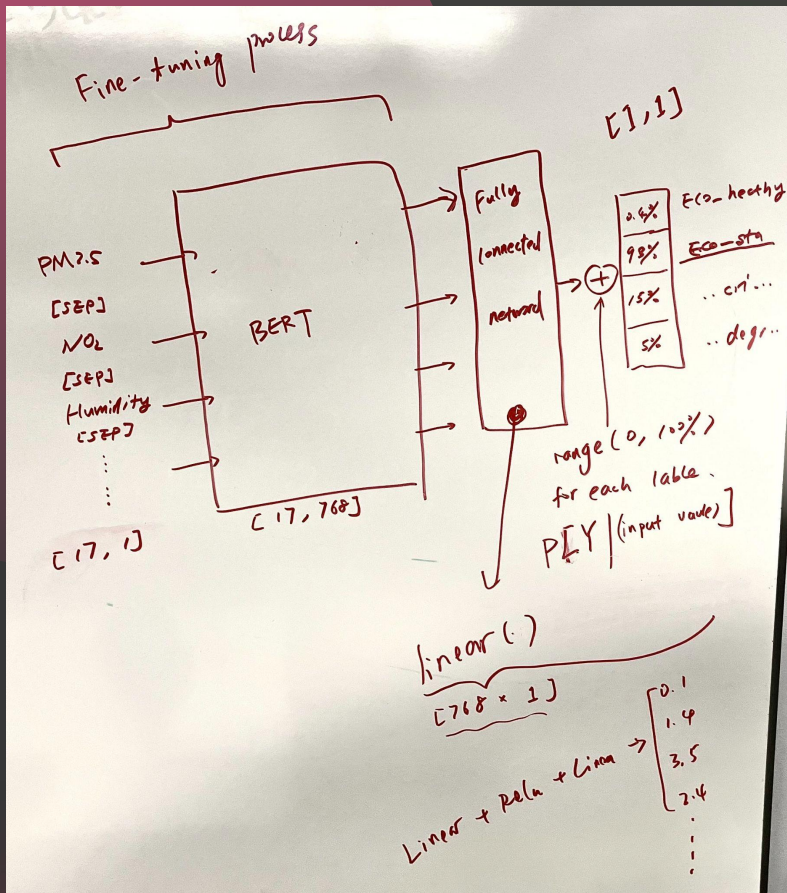 Fine-tuning process
[1,1]
PM2.5
[SEP]
NO2
[SEP]
Humidity
[SEP]
[17,1]
BERT
[17,768]
Fully
connected
+
98%
15%
5%
Eco_heathy
Eco-sta
..cri...
..degr..
range(0,100%)
for each lable.
P[Y|(input vaule)]
linear(.)
[768 × 1]
Linear + Relu +
0.1
1.4
3.5
2.4